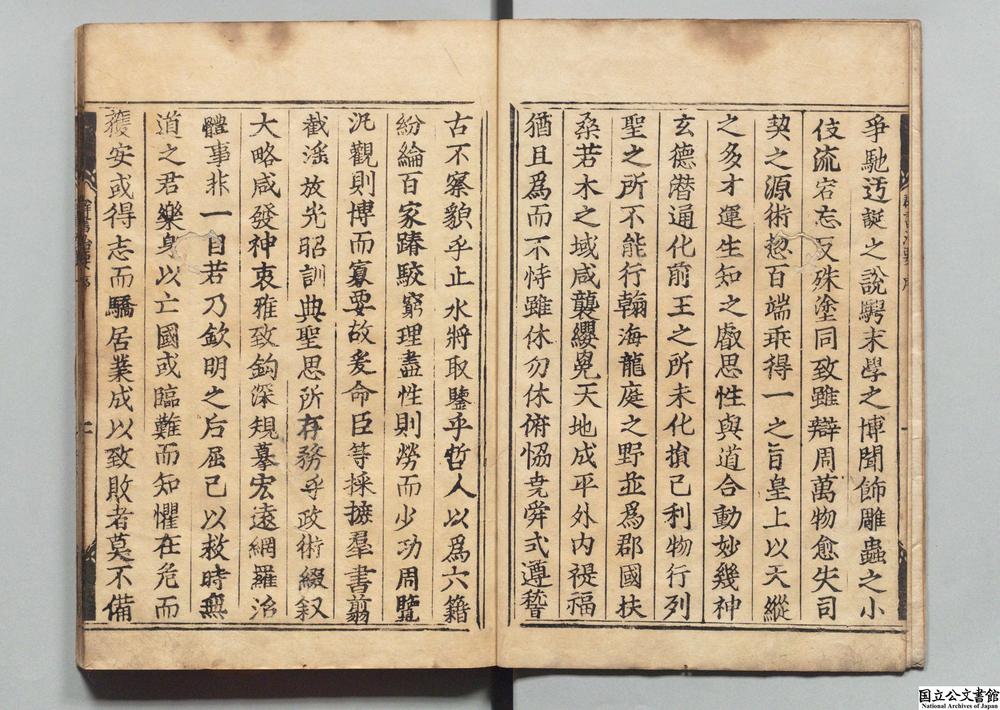 爭馳迃誕之說騁末學之博聞飾雕蟲之小
伎流宕忘反殊塗同致雖辯周萬物愈失司
契之源術揔百端乖得一之旨皇上以天縱
之多才運生知之叡思性與道合動妙幾神
玄德潛通化前王之所未化損己利物行列
聖之所不能行翰海龍庭之野並爲郡國扶
桑若木之域咸襲纓冕天地成平外內禔福
猶且爲而不恃雖休勿休俯恊堯舜式遵稽
古不察貌乎止水將取鑒乎哲人以爲六籍
紛綸百家踳駮窮理盡性則勞而少功周覽
汎觀則博而寡要故爰命臣等採摭羣書翦
截淫放光昭訓典聖思所存務乎政術綴叙
大略咸發神衷雅致鈎深規摹宏遠網羅治
體事非一目若乃欽明之后屈己以救時無
道之君樂身以亡國或臨難而知懼在危而
獲安或得志而驕居業成以致敗者莫不備
国立公文書館
National Archives of Japan